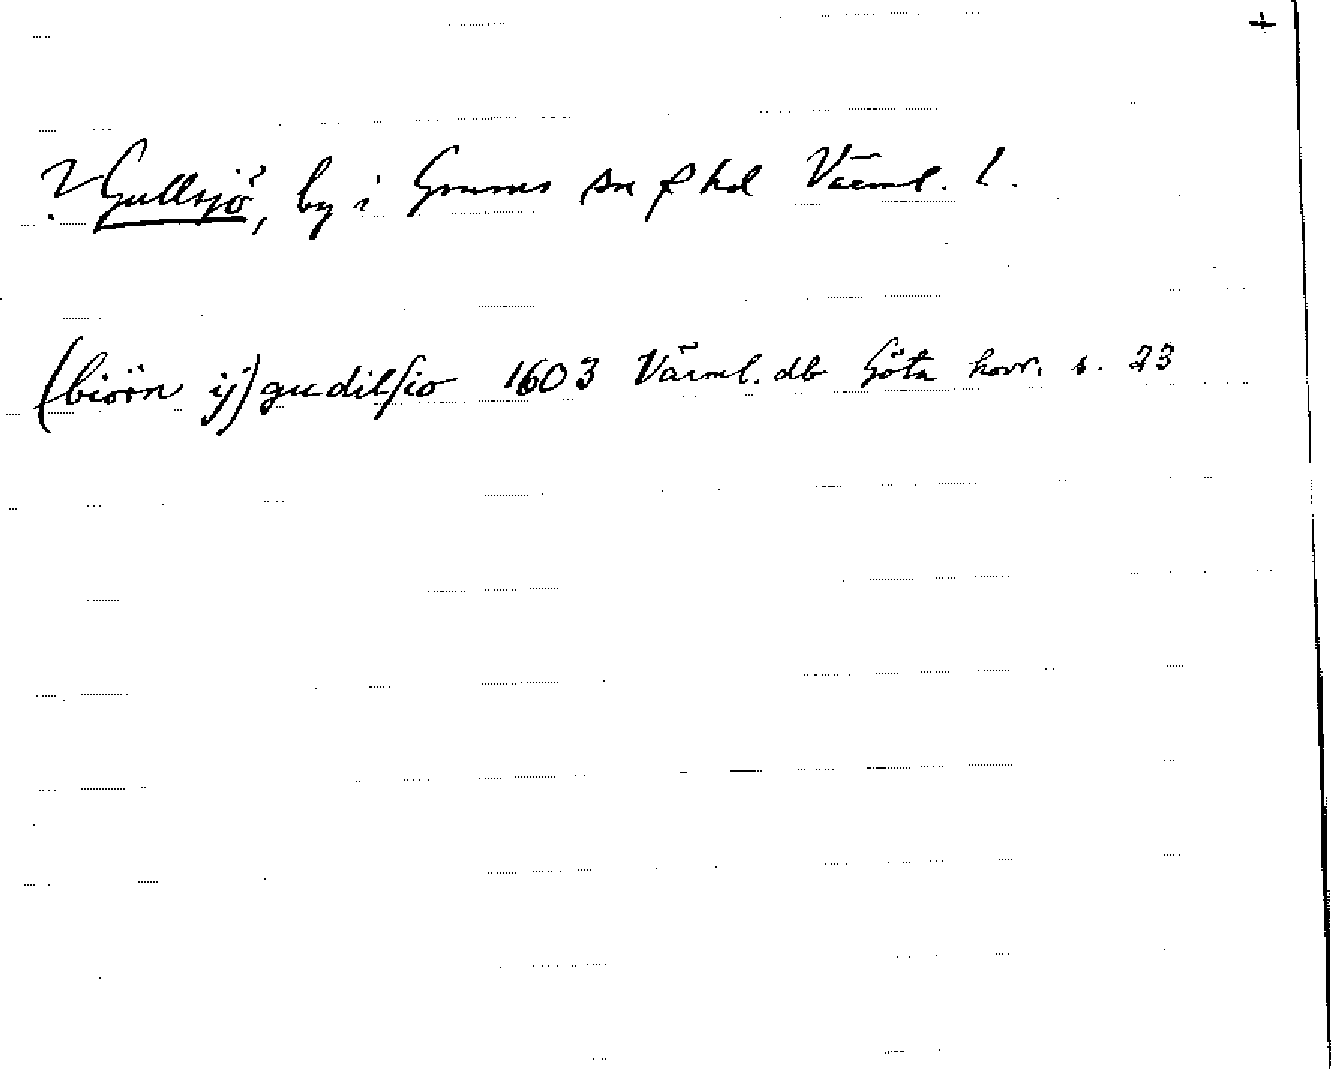 +
? Gullsjö, by i Grums sn o hd Värml. l.
(biörn ij) gudilsio 1603 Värml. db Göta hovr. s. 23